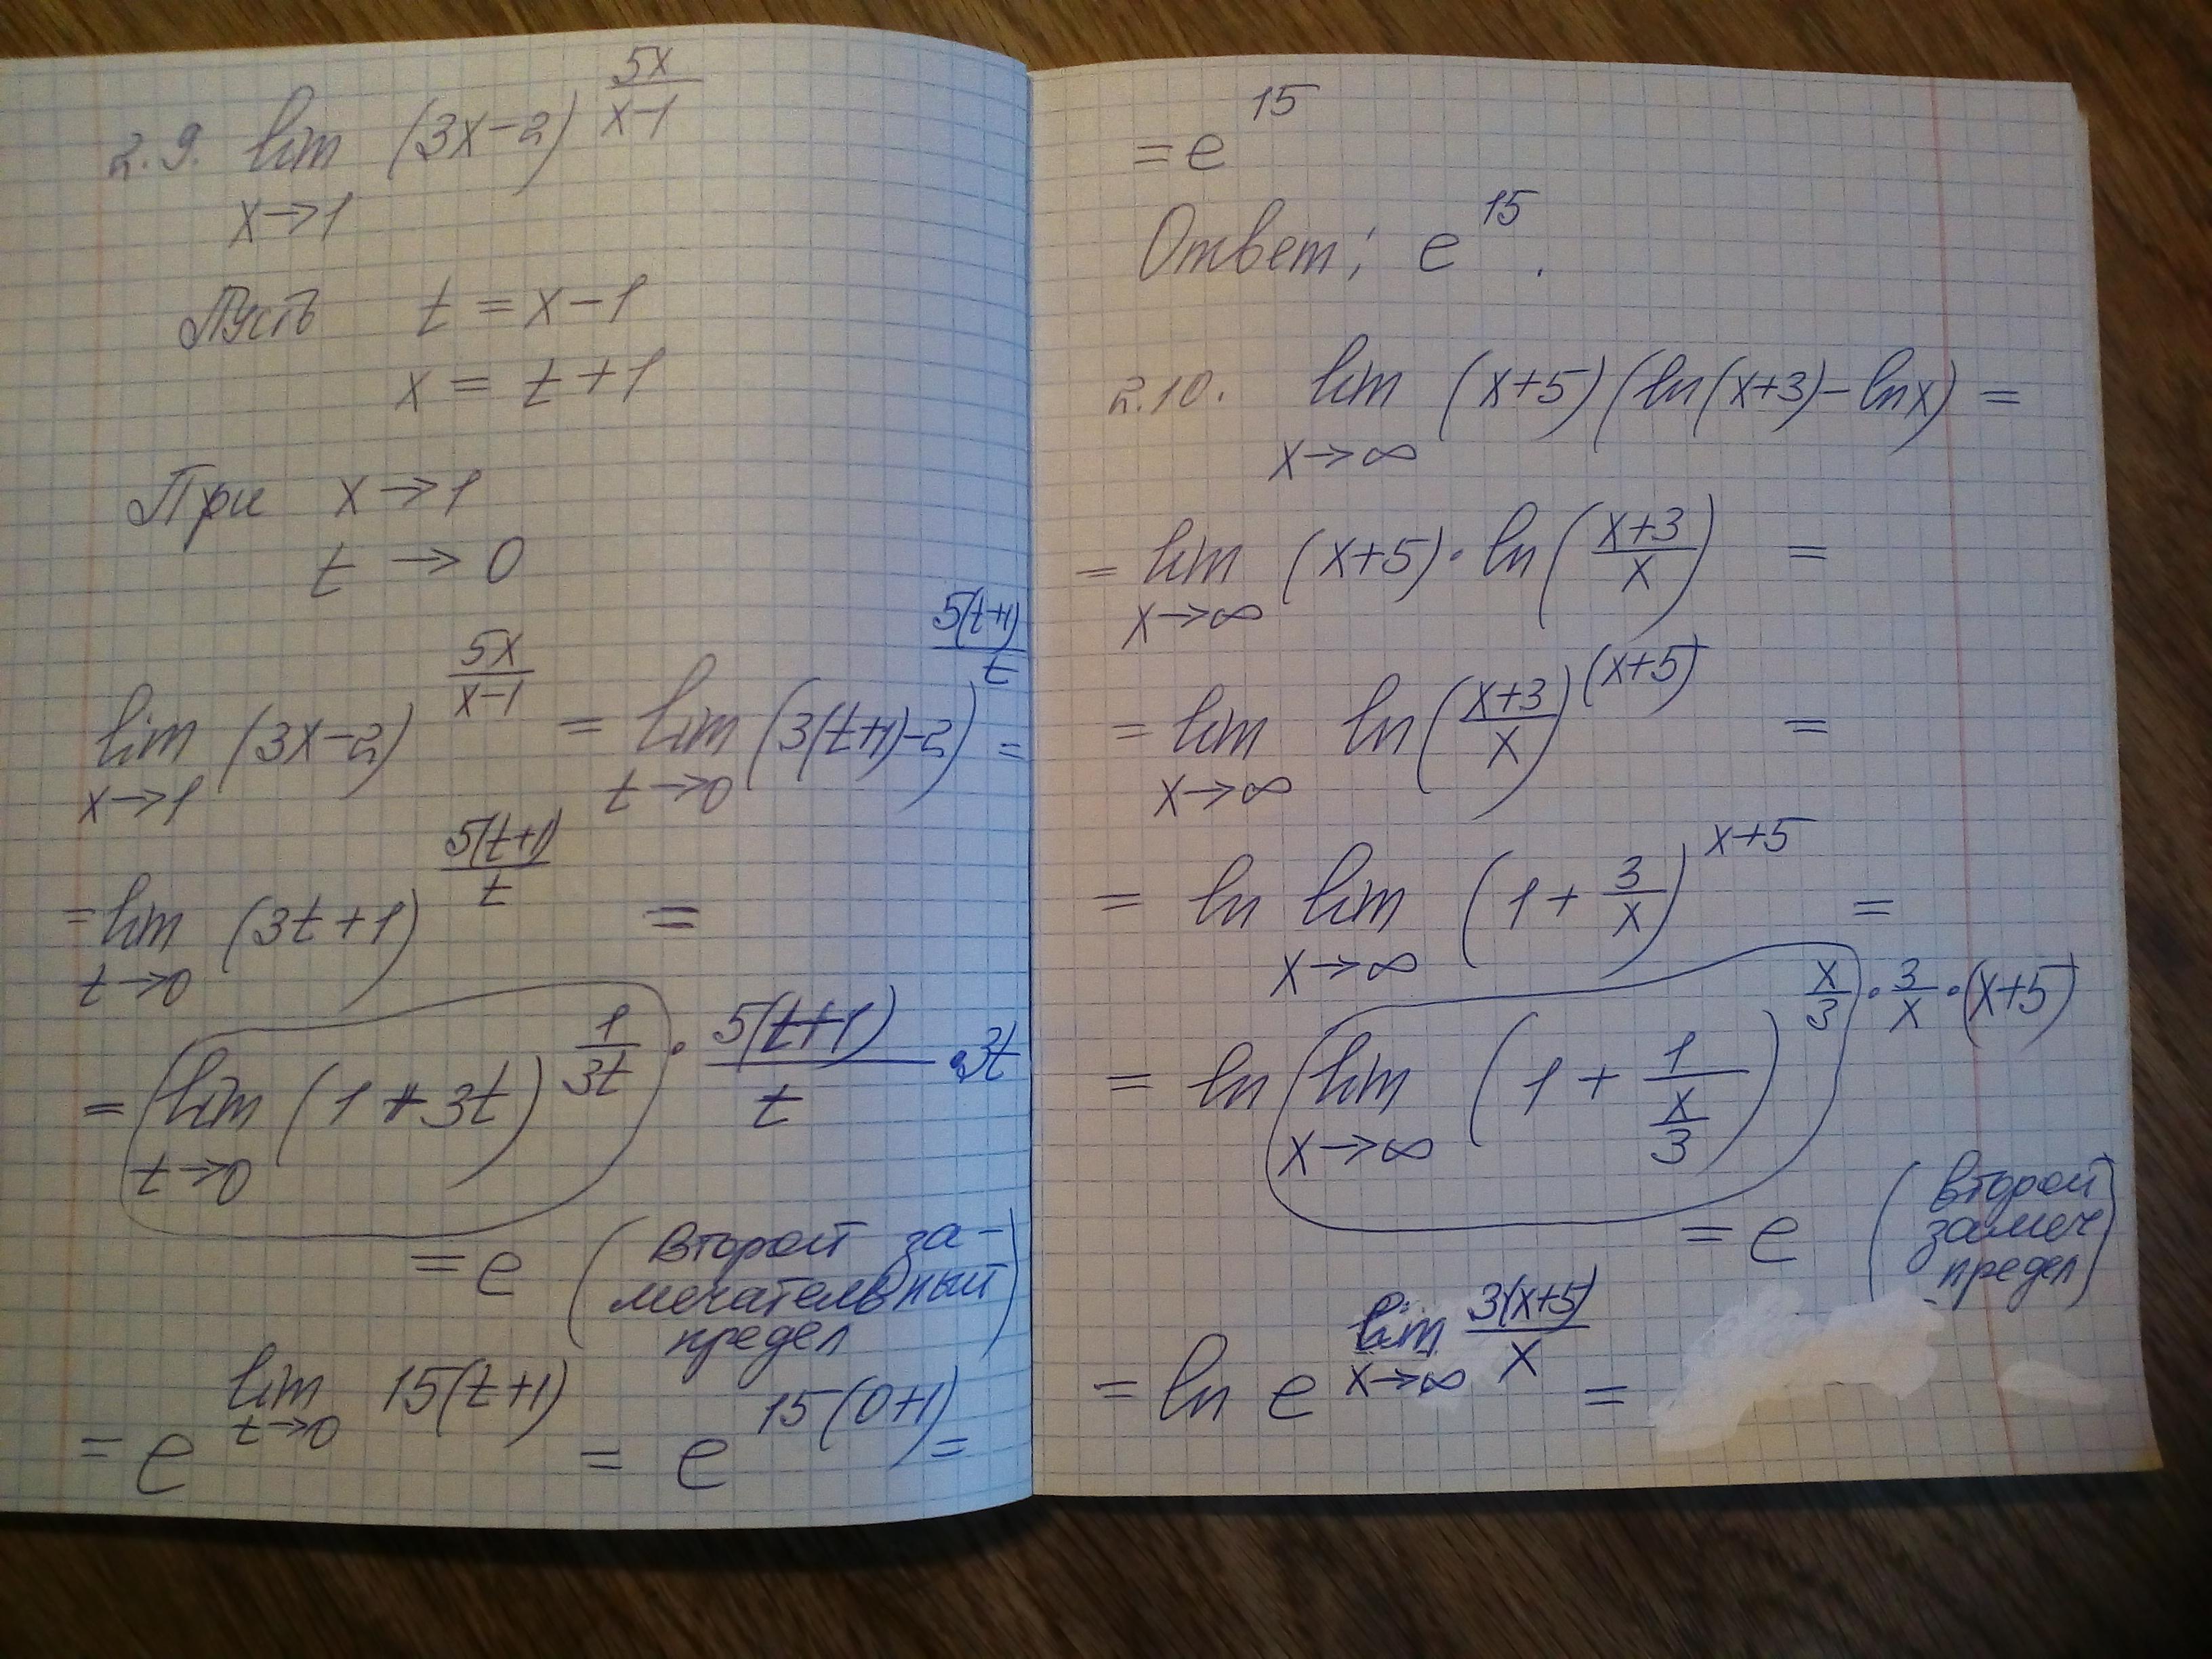 2.9. lim (3x-2)^(5x/(x-1))
x→1
Пусть t = x-1
x = t+1
При x→1
t → 0
lim (3x-2)^(5x/(x-1)) = lim (3(t+1)-2)^(5(t+1)/t) =
x→1 t→0
= lim (3t+1)^(5(t+1)/t) =
t→0
= lim (1+3t)^(1/(3t) · 5(t+1)/t · 3t)
t→0
= e (второй за-
мечательный
предел)
= e^(lim 15(t+1)) = e^(15(0+1)) =
t→0
= e^15
Ответ: e^15.
2.10. lim (x+5)(ln(x+3)-lnx) =
x→∞
= lim (x+5)·ln((x+3)/x) =
x→∞
= lim ln((x+3)/x)^(x+5) =
x→∞
= ln lim (1+3/x)^(x+5) =
x→∞
= ln lim (1+1/(x/3))^(x/3 · 3/x · (x+5))
x→∞
= e (второй
замеч
предел)
= ln e^(lim 3(x+5)/x) =
x→∞